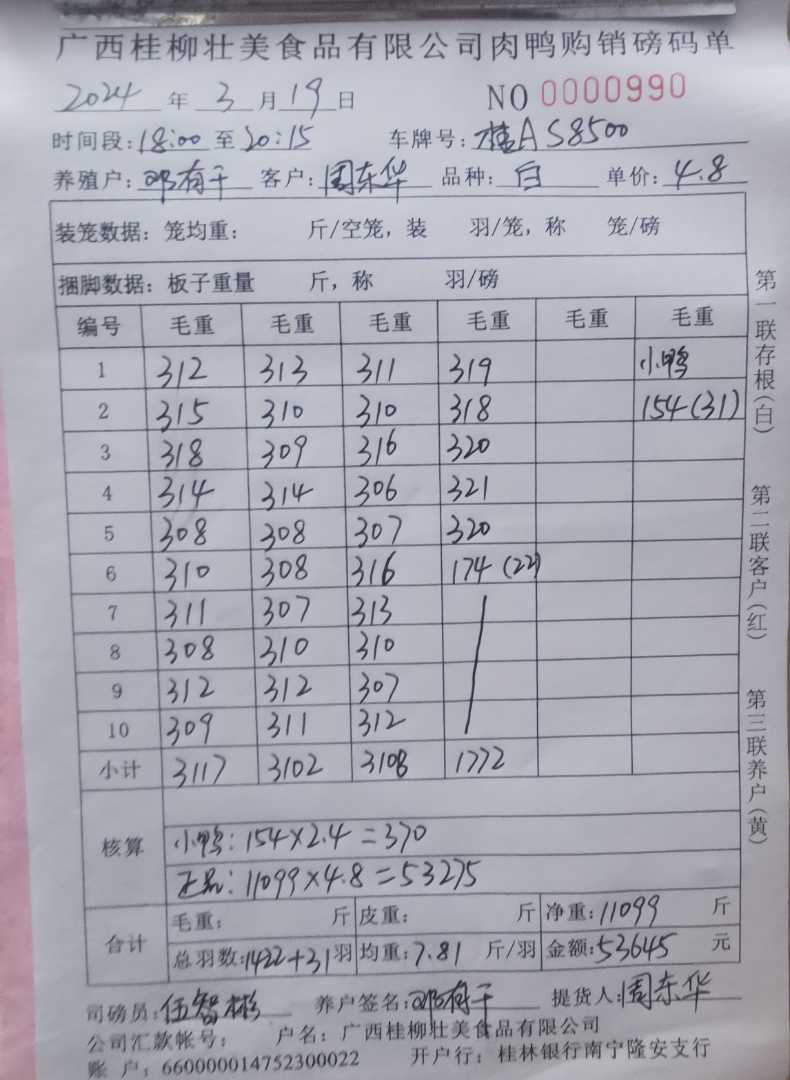 广西桂柳壮美食品有限公司肉鸭购销磅码单
2024 年 3 月 19 日 NO 0000990
时间段:18:00 至 20:15 车牌号:桂A S8500
养殖户:邓有干 客户:周东华 品种:白 单价:4.8
装笼数据:笼均重: 斤/空笼,装 羽/笼,称 笼/磅
捆脚数据:板子重量 斤,称 羽/磅
编号 毛重 毛重 毛重 毛重 毛重 毛重
1 312 313 311 319 小鸭
2 315 310 310 318 154(31)
3 318 309 316 320
4 314 314 306 321
5 308 308 307 320
6 310 308 316 174(22)
7 311 307 313
8 308 310 310
9 312 312 307
10 309 311 312
小计 3117 3102 3108 1772
核算
小鸭:154×2.4=370
正品:11099×4.8=53275
合计
毛重: 斤 皮重: 斤 净重:11099 斤
总羽数:1422+31羽 均重:7.81 斤/羽 金额:53645 元
司磅员:伍智彬 养户签名:邓有干 提货人:周东华
公司汇款帐号: 户名:广西桂柳壮美食品有限公司
账 户:660000014752300022 开户行:桂林银行南宁隆安支行
第一联存根(白)
第二联客户(红)
第三联养户(黄)